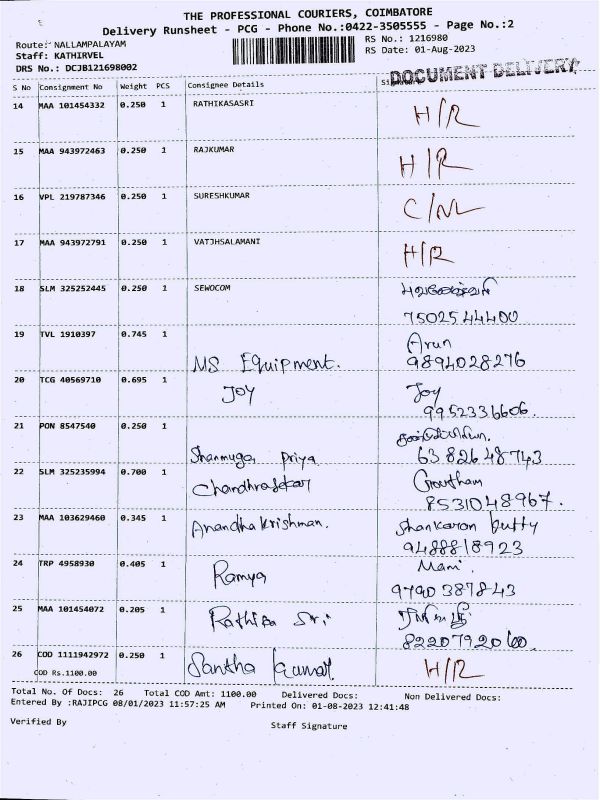 THE PROFESSIONAL COURIERS, COIMBATORE
Delivery Runsheet - PCG - Phone No.:0422-3505555 - Page No.:2
Route: NALLAMPALAYAM RS No.: 1216980
Staff: KATHIRVEL RS Date: 01-Aug-2023
DRS No.: DCJB121698002
DOCUMENT DELIVERY
S No Consignment No Weight PCS Consignee Details
14 MAA 101454332 0.250 1 RATHIKASASRI H/R
15 MAA 943972463 0.250 1 RAJKUMAR H/R
16 VPL 219787346 0.250 1 SURESHKUMAR C/NL
17 MAA 943972791 0.250 1 VATJHSALAMANI H/R
18 SLM 325252445 0.250 1 SEWOCOM
7502544400
19 TVL 1910397 0.745 1 MS Equipment. Arun
9894028276
20 TCG 40569710 0.695 1 JOY Joy
9952336606.
21 PON 8547540 0.250 1
Shanmuga priya 6382648743
22 SLM 325235994 0.700 1 Chandhrasekar Growtham
8531048967.
23 MAA 103629460 0.345 1 Anandhakrishnan. Shankaran kutty
9488818923
24 TRP 4958930 0.405 1 Ramya Mani
9790387843
25 MAA 101454072 0.205 1 Rathika Sri
8220792060.
26 COD 1111942972 0.250 1 Santha kumar H/R
COD Rs.1100.00
Total No. Of Docs: 26 Total COD Amt: 1100.00 Delivered Docs: Non Delivered Docs:
Entered By :RAJIPCG 08/01/2023 11:57:25 AM Printed On: 01-08-2023 12:41:48
Verified By Staff Signature